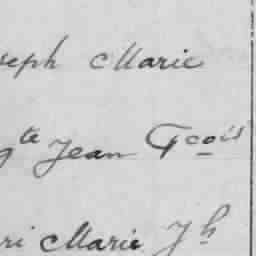 seph Marie
gte Jean Fcois
ri Marie Jh